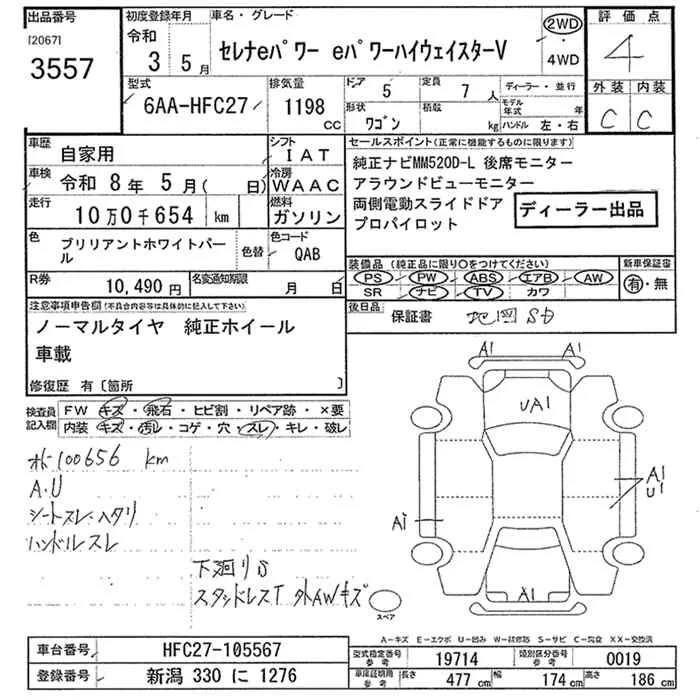 出品番号
[2067]
3557
初度登録年月
令和
3 5月
車名・グレード
セレナeパワー eパワーハイウェイスターV
2WD
・
4WD
評価点
4
外装 内装
C C
型式
6AA-HFC27
排気量
1198
CC
ドア
5
定員
7 人
形状
ワゴン
積載
kg
ディーラー・並行
モデル
年式 年
ハンドル 左・右
車歴
自家用
シフト
IAT
車検
令和 8年 5月( 日)
冷房
WAAC
走行
10万0千654 km
燃料
ガソリン
色
ブリリアントホワイトパー
ル
色替
色コード
QAB
R券
10,490 円
名変通知期限
月 日
セールスポイント(正常に機能するものに限ります)
純正ナビMM520D-L 後席モニター
アラウンドビューモニター
両側電動スライドドア
プロパイロット
ディーラー出品
装備品 (純正品に限り○をつけてください)
PS PW ABS エアB AW
SR ナビ TV カワ
新車保証書
有・無
後日品
保証書 地図SD
注意事項申告欄(不具合内容等は具体的に記入して下さい)
ノーマルタイヤ 純正ホイール
車載
修復歴 有〔箇所 〕
検査員
記入欄
FW キズ・飛石・ヒビ割・リペア跡・×要
内装 キズ・汚レ・コゲ・穴・スレ・キレ・破レ
100656 km
A.U
シートスレ・ヘタリ
ハンドルスレ
下廻りS
スタッドレスT 外AWキズ
A1 A1
UA1
A1
U1
A1
A1
スペア
A-キズ E-エクボ U-凹み W-補修跡 S-サビ C-腐食 XX-交換済
車台番号
HFC27-105567
登録番号
新潟 330 に 1276
型式指定番号
参考
19714
類別区分番号
参考
0019
車庫証明用
参考
長さ
477 cm
幅
174 cm
高さ
186 cm